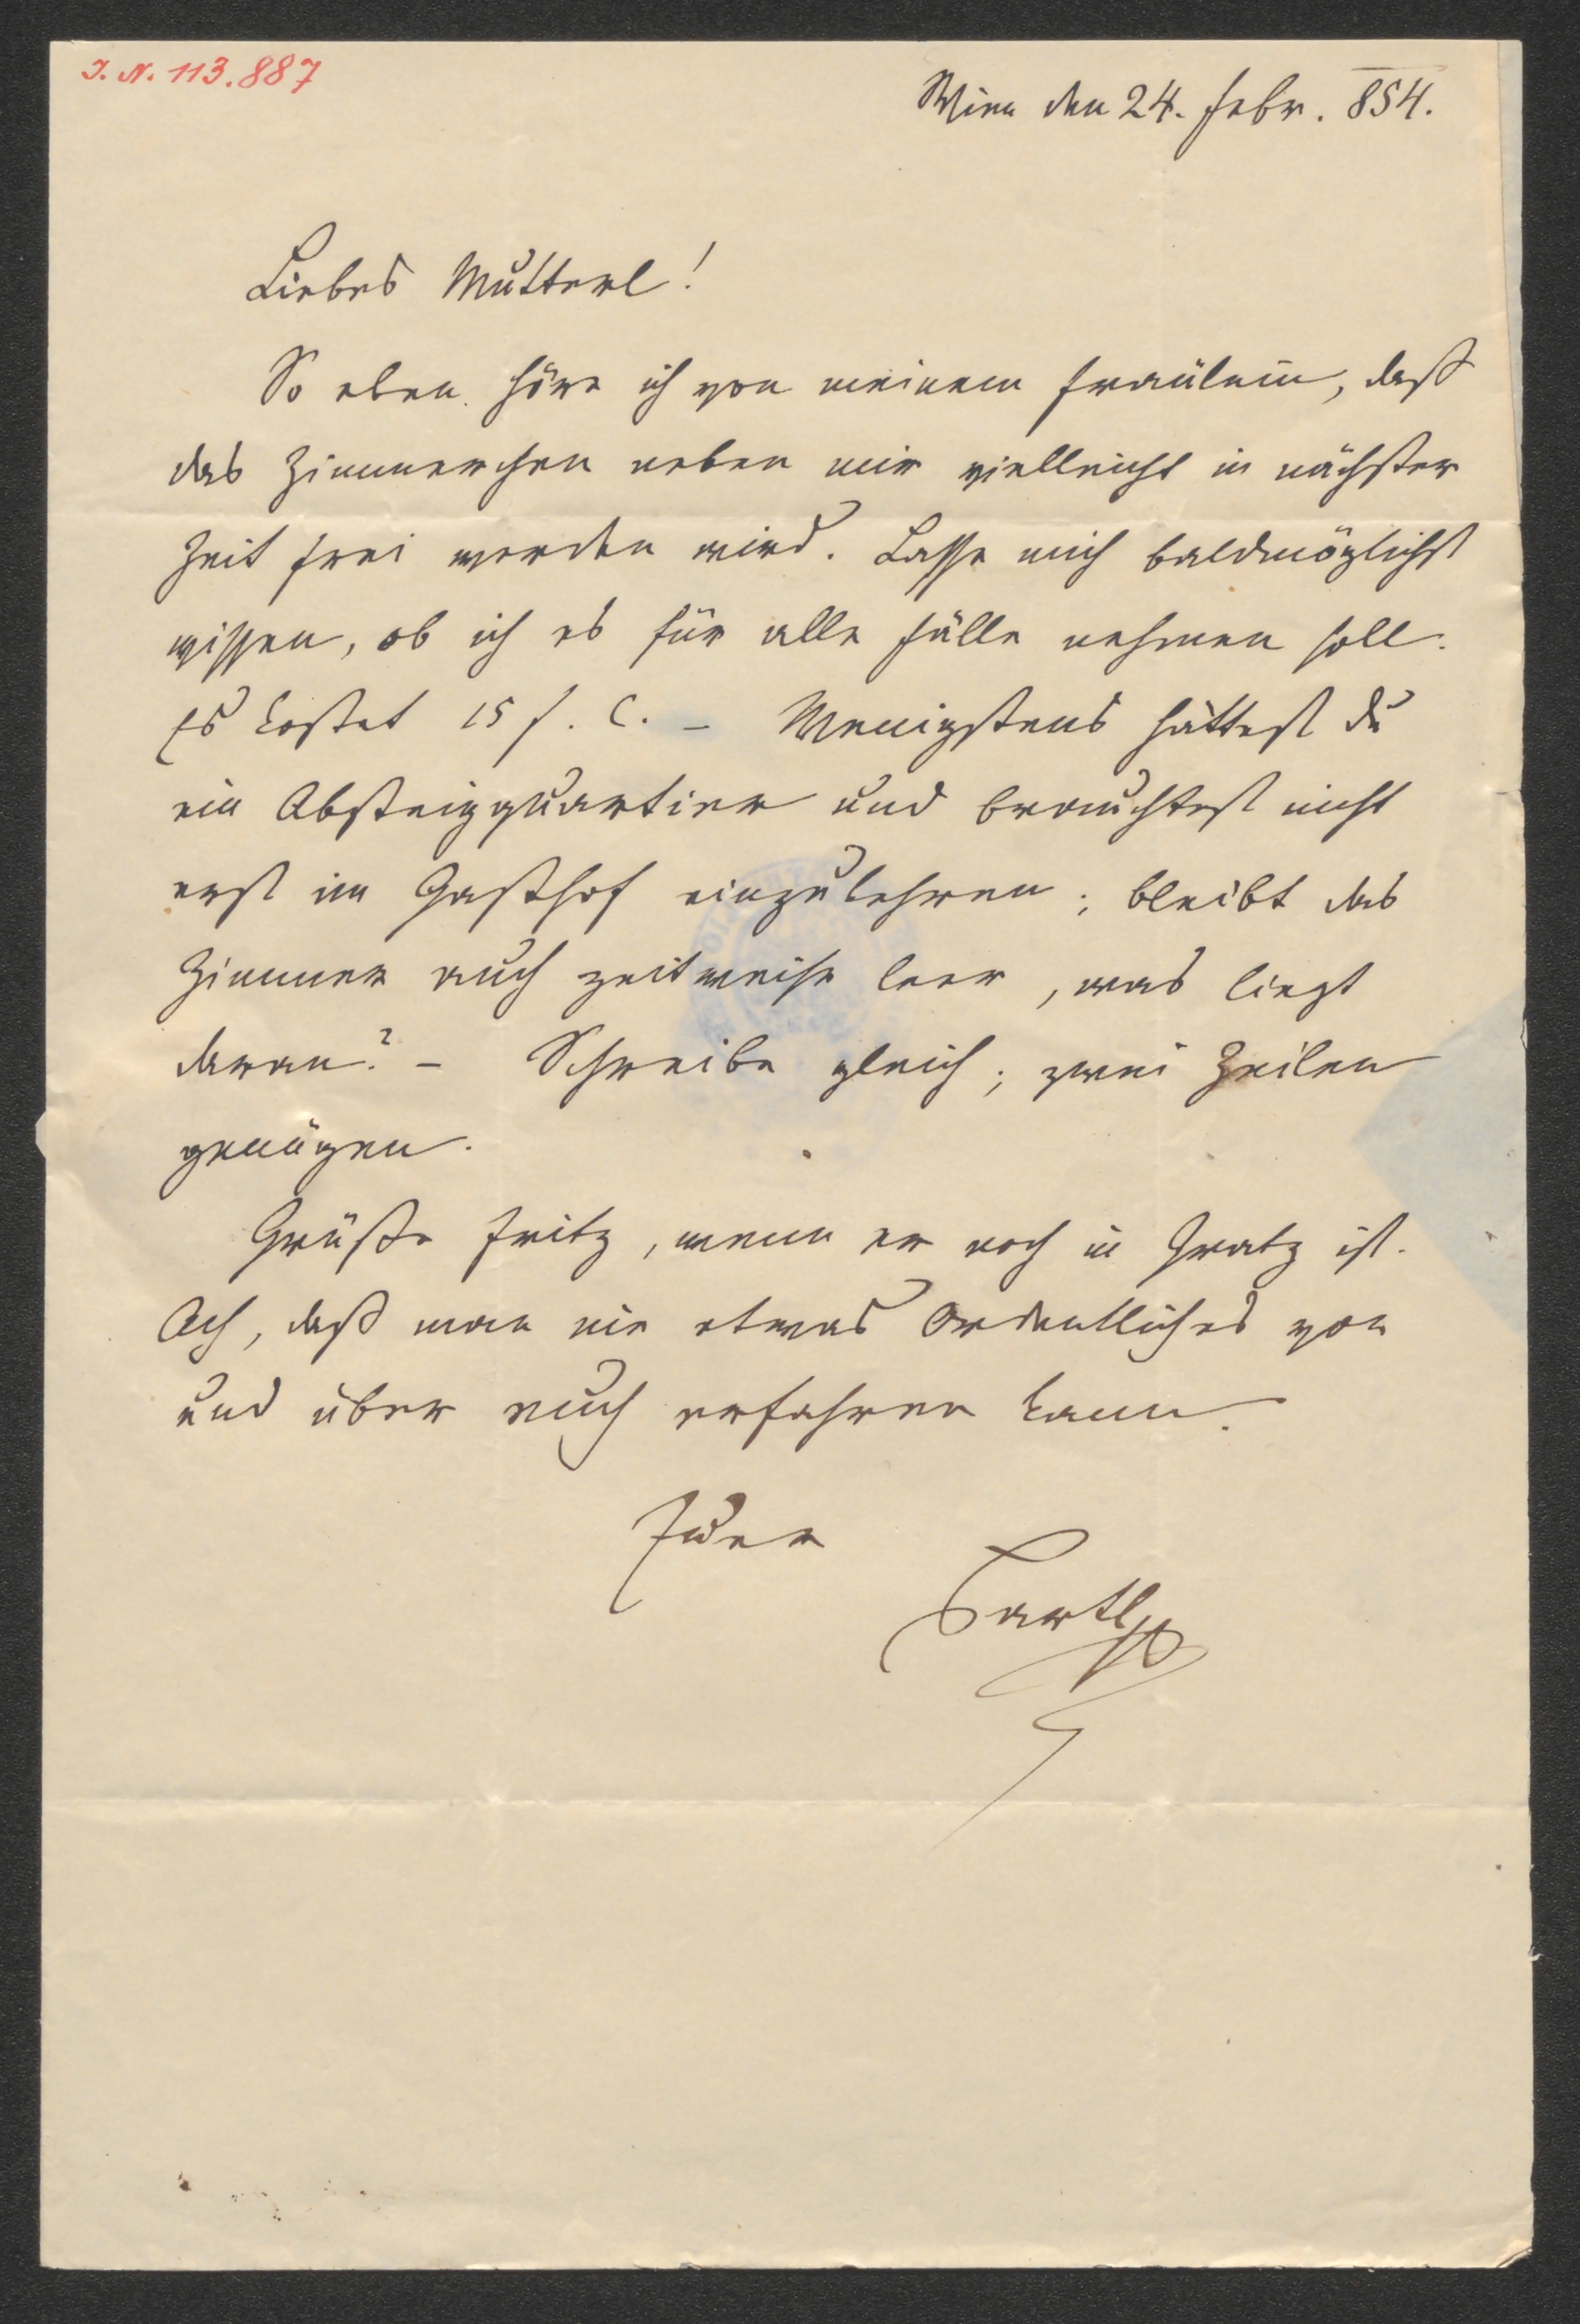 I. N. 113.887
Wien den 24. Febr. 854.
Liebes Mutterl!
So eben höre ich von meinem Fräulein, daß
das Zimmerchen neben mir vielleicht in nächster
Zeit frei werden wird. Lasse mich baldmöglichst
wissen, ob ich es für alle Fälle nehmen soll.
Es kostet 15 f. C. – Wenigstens hättest du
ein Absteigquartier und brauchtest nicht
erst im Gasthof einzukehren; bleibt das
Zimmer auch zeitweise leer, was liegt
daran? – Schreibe gleich; zwei Zeilen
genügen.
Grüße Fritz, wenn er noch in Gratz ist.
Ach, daß man nie etwas Ordentliches von
und über euch erfahren kann.
Euer